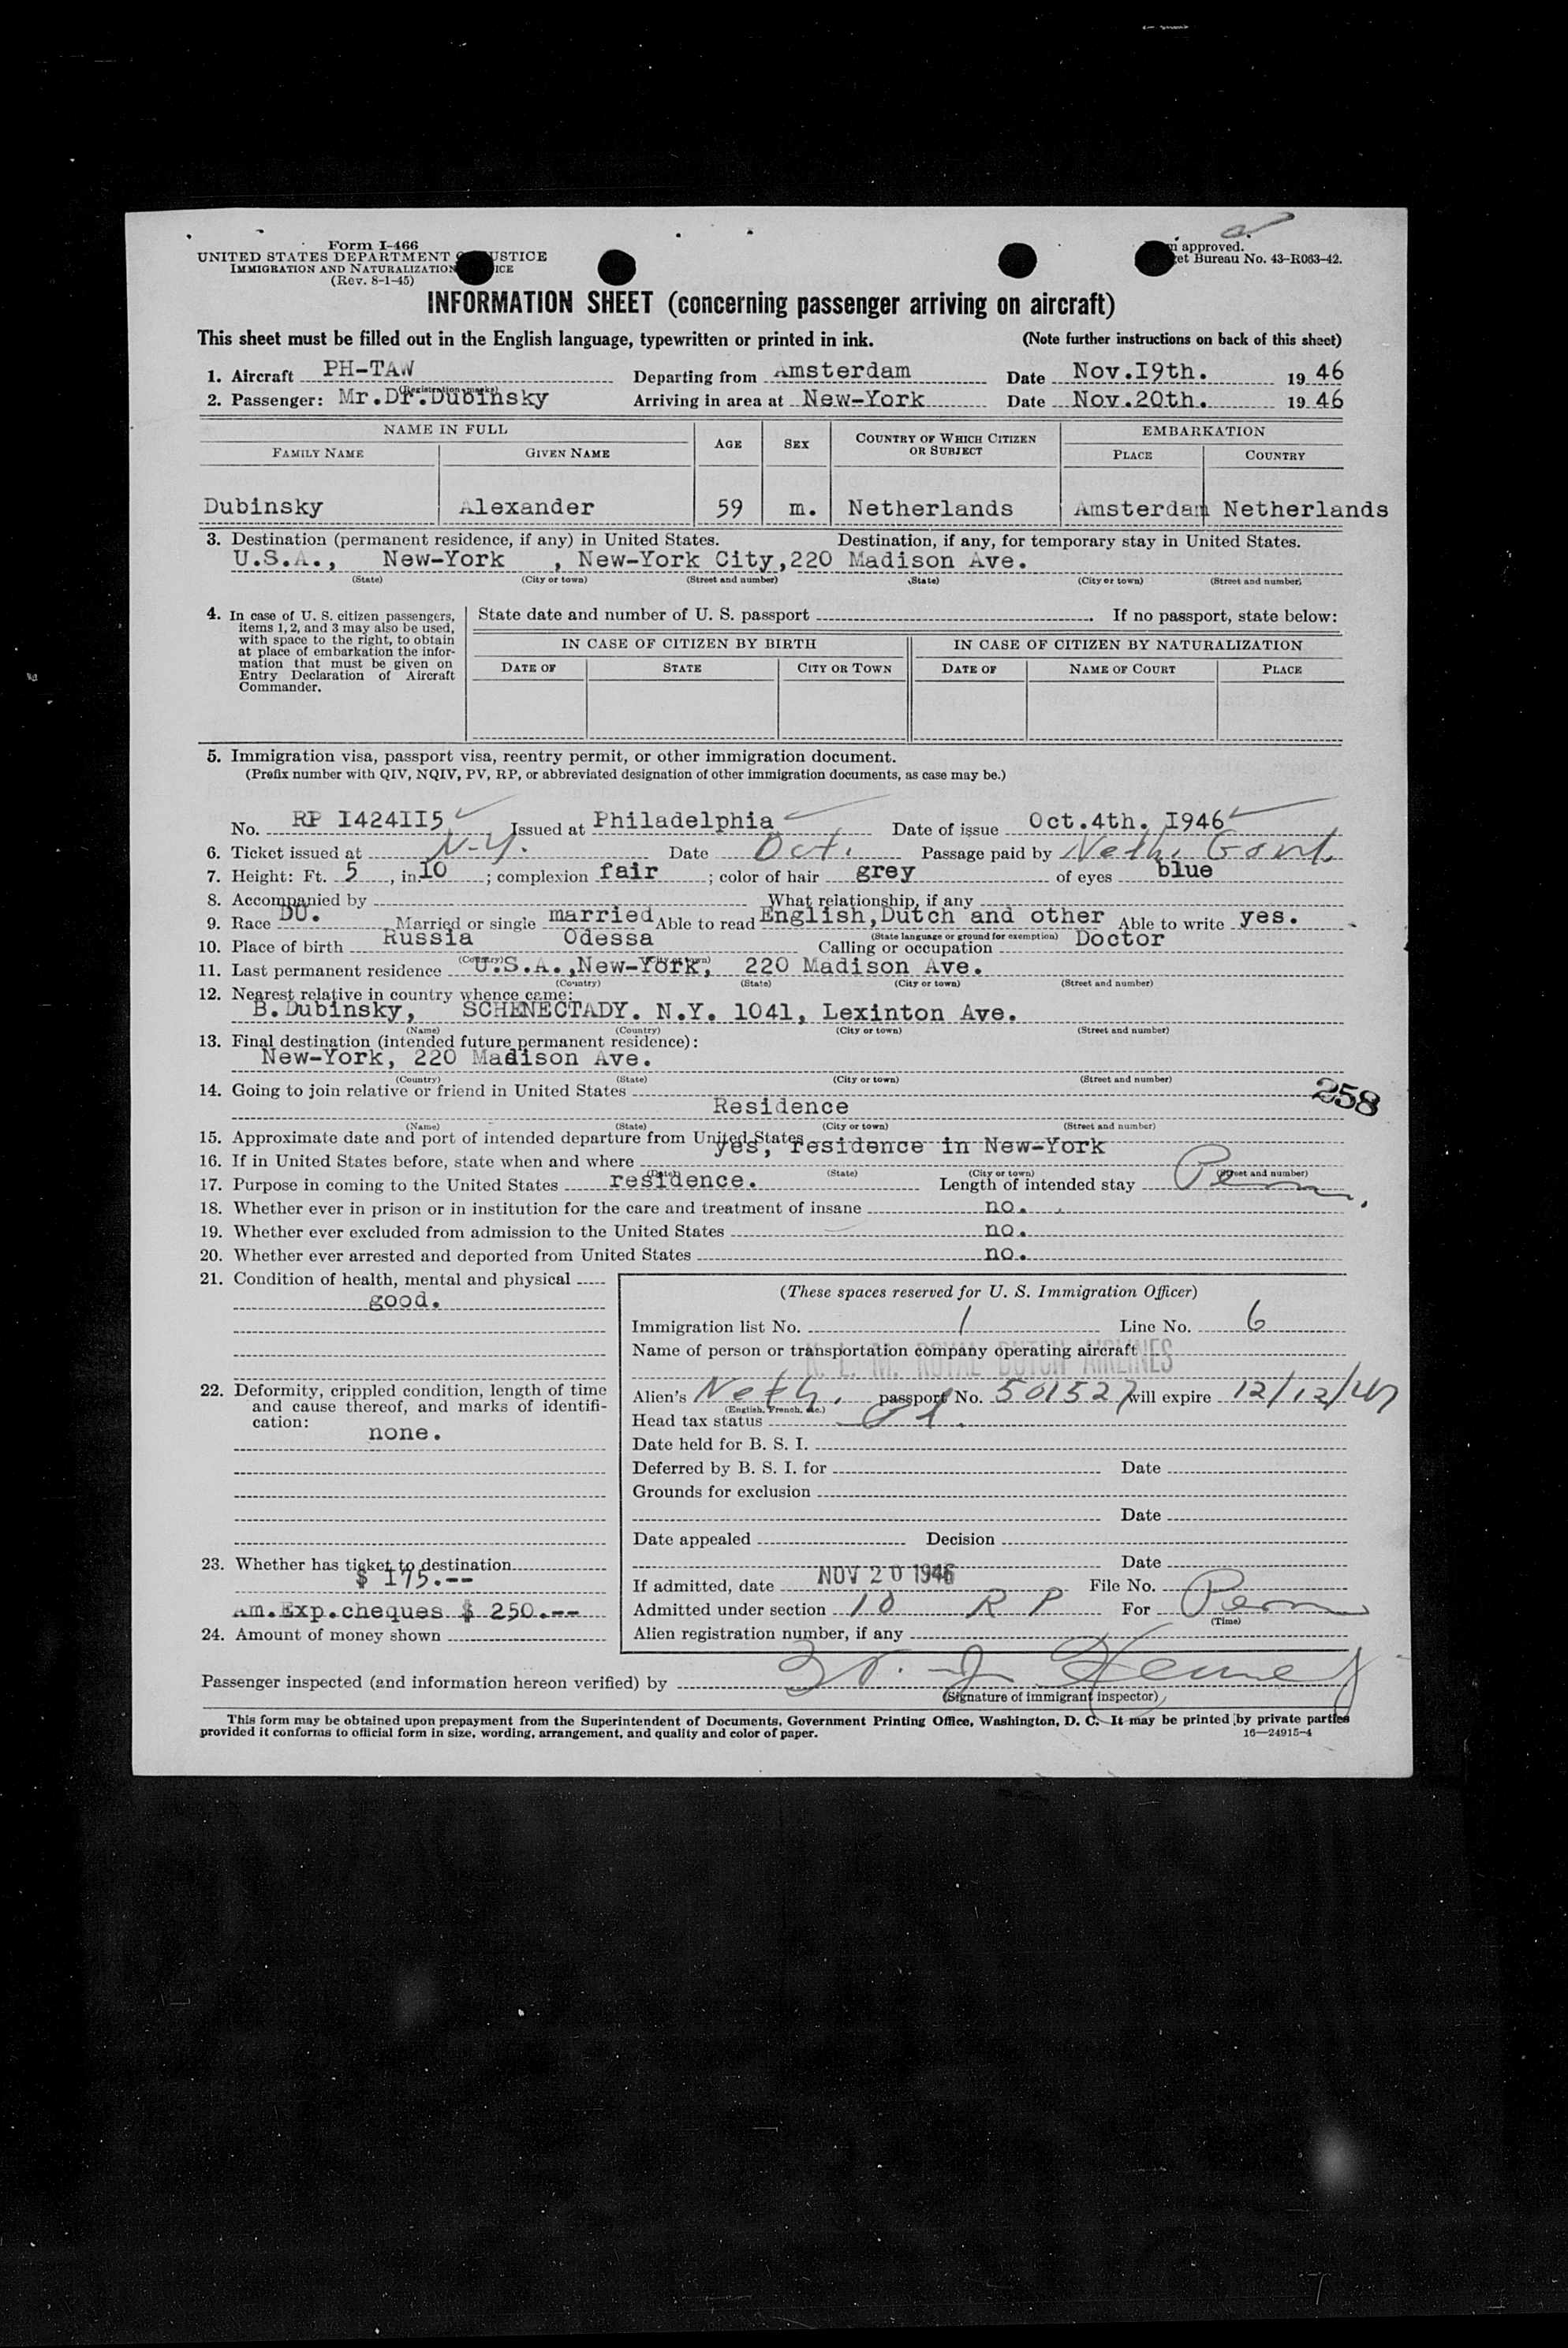 Form I-466
UNITED STATES DEPARTMENT OF JUSTICE
IMMIGRATION AND NATURALIZATION SERVICE
(Rev. 8-1-45)
approved.
Bureau No. 43-R063-42.
INFORMATION SHEET (concerning passenger arriving on aircraft)
This sheet must be filled out in the English language, typewritten or printed in ink. (Note further instructions on back of this sheet)
1. Aircraft PH-TAW Departing from Amsterdam Date Nov.I9th. 19 46
(Registration marks)
2. Passenger: Mr.Dr.Dubinsky Arriving in area at New-York Date Nov.20th. 19 46
NAME IN FULL AGE SEX COUNTRY OF WHICH CITIZEN OR SUBJECT EMBARKATION
FAMILY NAME GIVEN NAME PLACE COUNTRY
Dubinsky Alexander 59 m. Netherlands Amsterdam Netherlands
3. Destination (permanent residence, if any) in United States. Destination, if any, for temporary stay in United States.
U.S.A., New-York , New-York City,220 Madison Ave.
(State) (City or town) (Street and number) (State) (City or town) (Street and number)
4. In case of U. S. citizen passengers, items 1, 2, and 3 may also be used, with space to the right, to obtain at place of embarkation the information that must be given on Entry Declaration of Aircraft Commander.
State date and number of U. S. passport . If no passport, state below:
IN CASE OF CITIZEN BY BIRTH IN CASE OF CITIZEN BY NATURALIZATION
DATE OF STATE CITY OR TOWN DATE OF NAME OF COURT PLACE
5. Immigration visa, passport visa, reentry permit, or other immigration document.
(Prefix number with QIV, NQIV, PV, RP, or abbreviated designation of other immigration documents, as case may be.)
No. RP I424II5 Issued at Philadelphia Date of issue Oct.4th. I946
6. Ticket issued at N.Y. Date Oct. Passage paid by Neth. Govt.
7. Height: Ft. 5 , in.10 ; complexion fair ; color of hair grey of eyes blue
8. Accompanied by What relationship, if any
9. Race DU. Married or single married Able to read English,Dutch and other Able to write yes.
(State language or ground for exemption)
10. Place of birth Russia Odessa Calling or occupation Doctor
(Country) (City or town)
11. Last permanent residence U.S.A.,New-York, 220 Madison Ave.
(Country) (State) (City or town) (Street and number)
12. Nearest relative in country whence came:
B.Dubinsky, SCHENECTADY. N.Y. 1041, Lexinton Ave.
(Name) (Country) (City or town) (Street and number)
13. Final destination (intended future permanent residence):
New-York, 220 Madison Ave.
(Country) (State) (City or town) (Street and number)
14. Going to join relative or friend in United States
258
Residence
(Name) (State) (City or town) (Street and number)
15. Approximate date and port of intended departure from United States
16. If in United States before, state when and where yes, residence in New-York
(Date) (State) (City or town) (Street and number)
17. Purpose in coming to the United States residence. Length of intended stay Perm.
18. Whether ever in prison or in institution for the care and treatment of insane no.
19. Whether ever excluded from admission to the United States no.
20. Whether ever arrested and deported from United States no.
21. Condition of health, mental and physical
good.
22. Deformity, crippled condition, length of time and cause thereof, and marks of identification:
none.
23. Whether has ticket to destination
$ I75.--
Am.Exp.cheques $ 250.--
24. Amount of money shown
(These spaces reserved for U. S. Immigration Officer)
Immigration list No. 1 Line No. 6
Name of person or transportation company operating aircraft
K. L. M. ROYAL DUTCH AIRLINES
Alien's Neth. passport No. 501527 will expire 12/12/47
(English, French, etc.)
Head tax status
Date held for B. S. I.
Deferred by B. S. I. for Date
Grounds for exclusion
Date
Date appealed Decision
Date
If admitted, date NOV 20 1946 File No.
Admitted under section 10 R P For Perm
(Time)
Alien registration number, if any
Passenger inspected (and information hereon verified) by
(Signature of immigrant inspector)
This form may be obtained upon prepayment from the Superintendent of Documents, Government Printing Office, Washington, D. C. It may be printed by private parties
provided it conforms to official form in size, wording, arrangement, and quality and color of paper. 16—24915-4